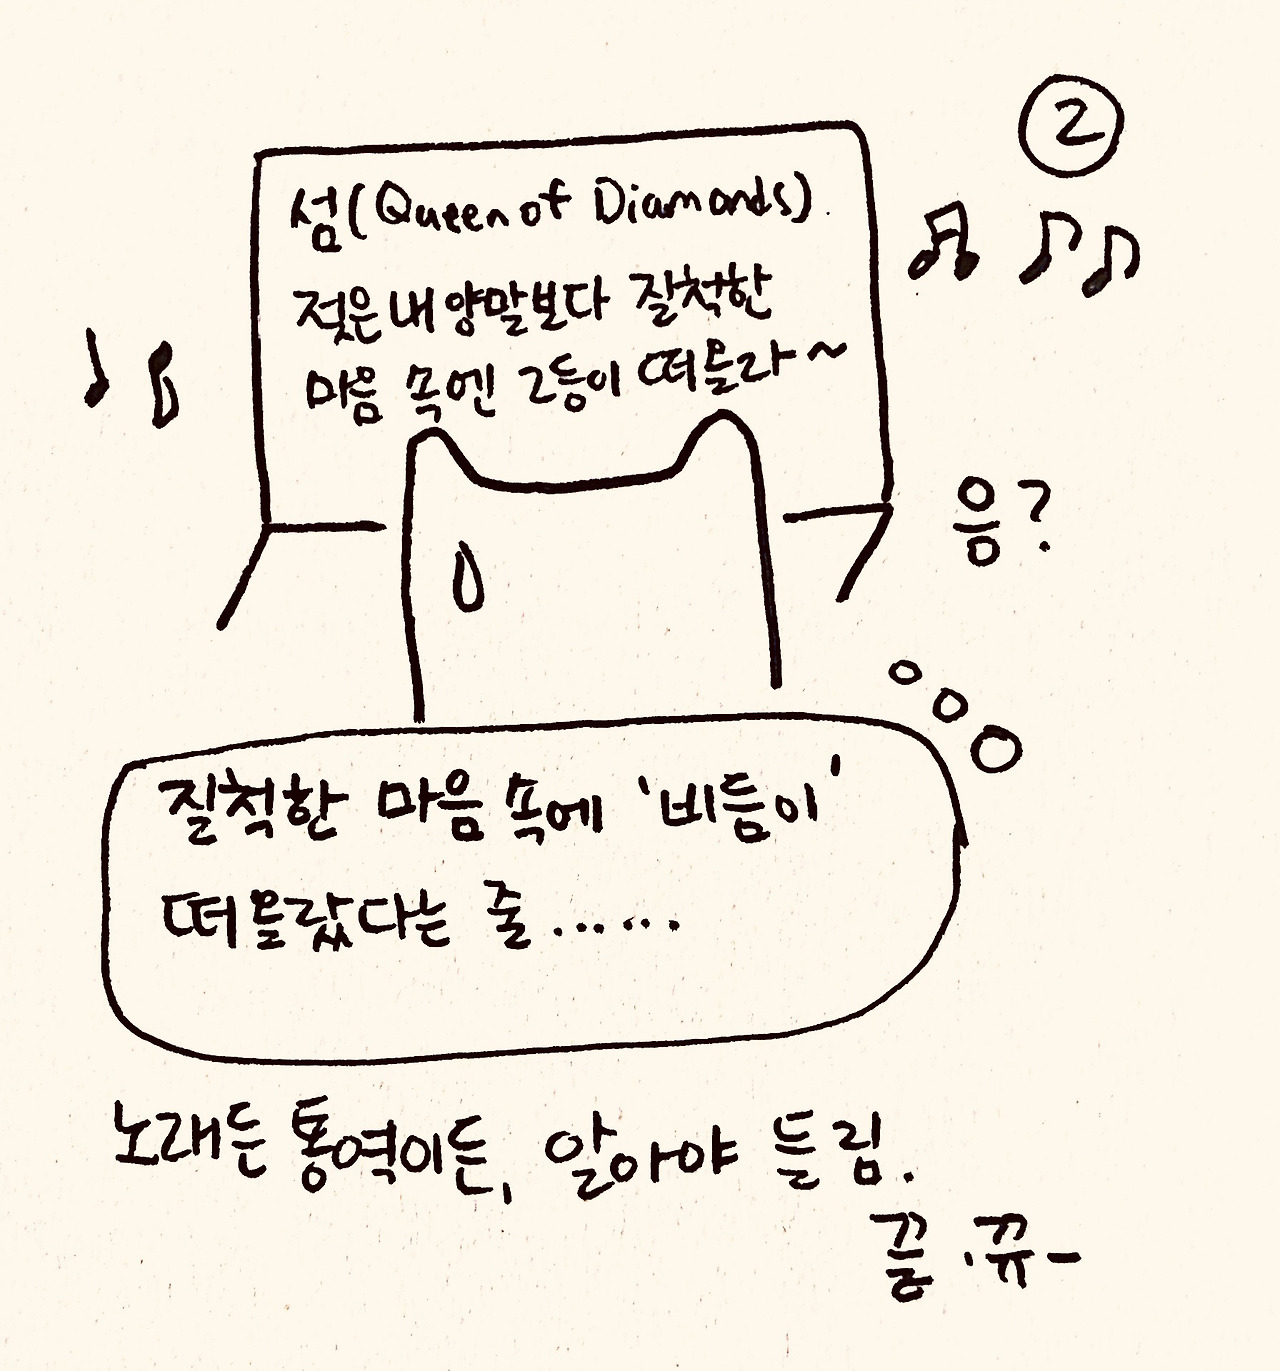 ②
섬(Queen of Diamonds)
젖은 내 양말보다 질척한
마음 속엔 2등이 떠올라~
음?
질척한 마음 속에 '비듬이'
떠올랐다는 줄......
노래든 통역이든, 알아야 들림.
끙.뀨-